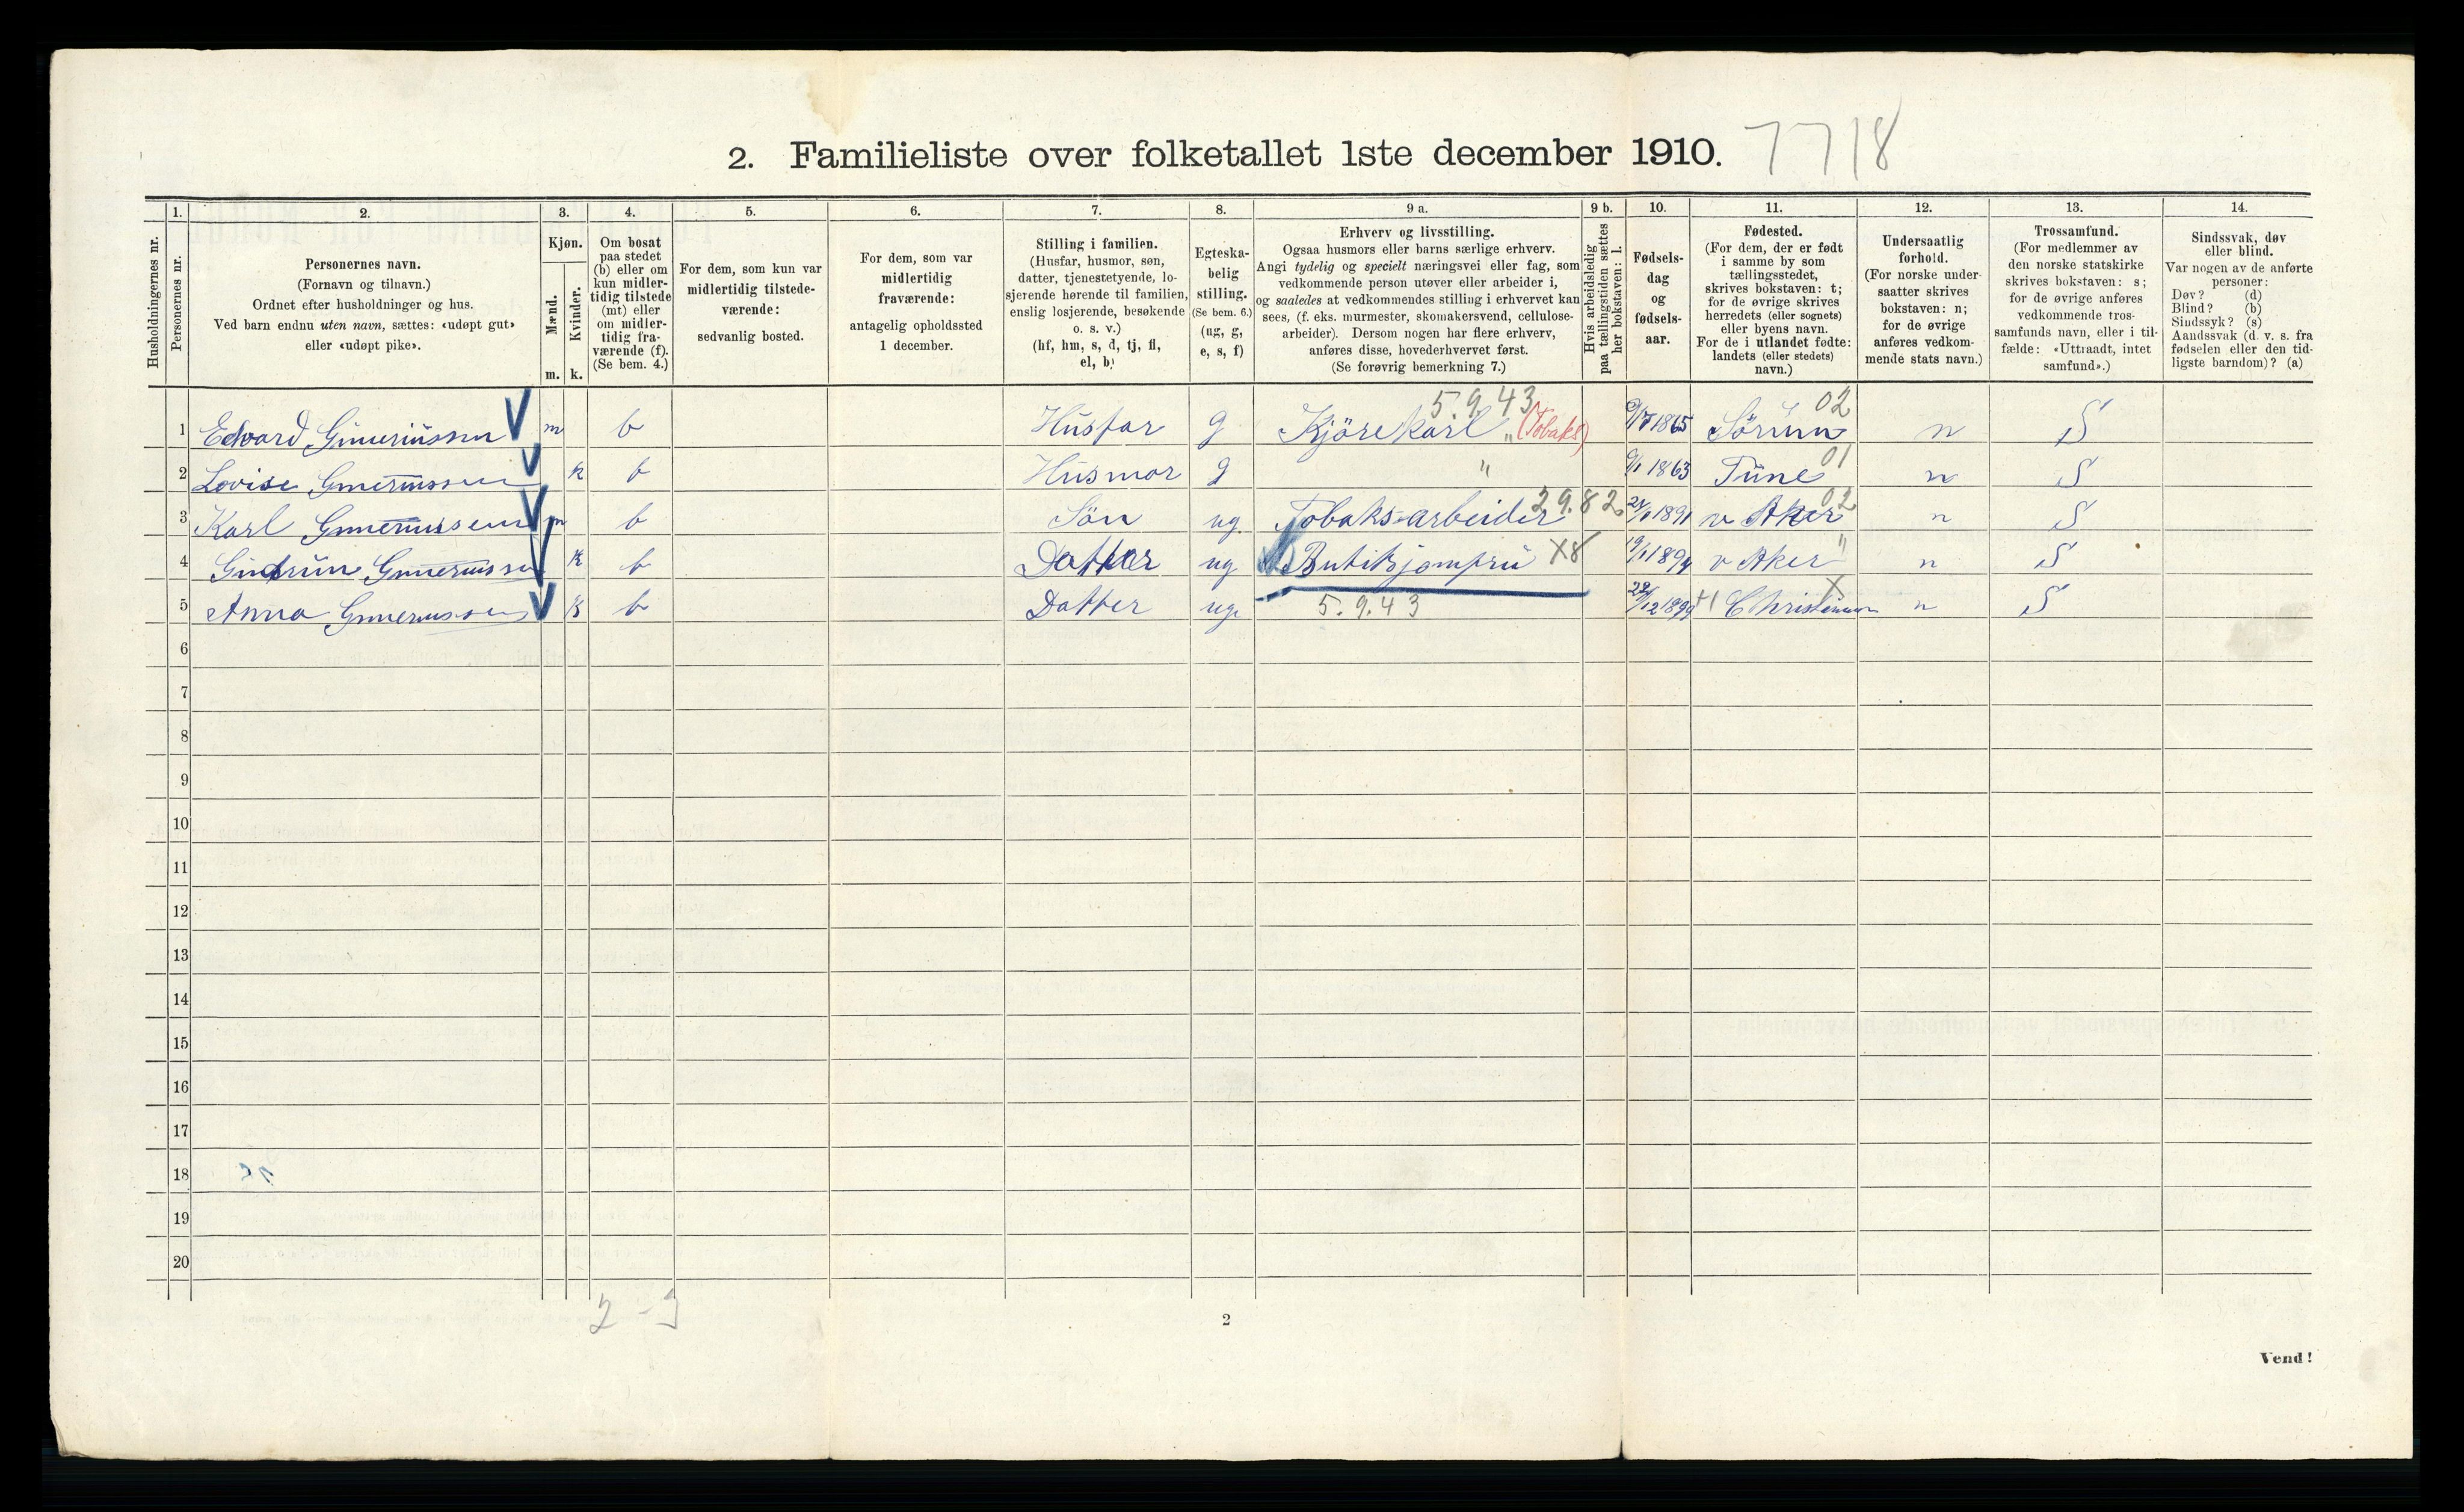 2. Familieliste over folketallet 1ste december 1910. 7718
Husholdningernes nr.
1. Personernes nr.
2. Personernes navn.
(Fornavn og tilnavn.)
Ordnet efter husholdninger og hus.
Ved barn endnu uten navn, sættes: «udøpt gut»
eller «udøpt pike».
3. Kjøn.
Mænd. m.
Kvinder. k.
4. Om bosat
paa stedet
(b) eller om
kun midler-
tidig tilstede
(mt) eller
om midler-
tidig fra-
værende (f).
(Se bem. 4.)
5. For dem, som kun var
midlertidig tilstede-
værende:
sedvanlig bosted.
6. For dem, som var
midlertidig
fraværende:
antagelig opholdssted
1 december.
7. Stilling i familien.
(Husfar, husmor, søn,
datter, tjenestetyende, lo-
sjerende hørende til familien,
enslig losjerende, besøkende
o. s. v.)
(hf, hm, s, d, tj, fl,
el, b)
8. Egteska-
belig
stilling.
(Se bem. 6.)
(ug, g,
e, s, f)
9 a. Erhverv og livsstilling.
Ogsaa husmors eller barns særlige erhverv.
Angi tydelig og specielt næringsvei eller fag, som
vedkommende person utøver eller arbeider i,
og saaledes at vedkommendes stilling i erhvervet kan
sees, (f. eks. murmester, skomakersvend, cellulose-
arbeider). Dersom nogen har flere erhverv,
anføres disse, hovederhvervet først.
(Se forøvrig bemerkning 7.)
9 b. Hvis arbeidsledig
paa tællingstiden sættes
her bokstaven: l.
10. Fødsels-
dag
og
fødsels-
aar.
11. Fødested.
(For dem, der er født
i samme by som
tællingsstedet,
skrives bokstaven: t;
for de øvrige skrives
herredets (eller sognets)
eller byens navn.
For de i utlandet fødte:
landets (eller stedets)
navn.)
12. Undersaatlig
forhold.
(For norske under-
saatter skrives
bokstaven: n;
for de øvrige
anføres vedkom-
mende stats navn.)
13. Trossamfund.
(For medlemmer av
den norske statskirke
skrives bokstaven: s;
for de øvrige anføres
vedkommende tros-
samfunds navn, eller i til-
fælde: «Uttraadt, intet
samfund».)
14. Sindssvak, døv
eller blind.
Var nogen av de anførte
personer:
Døv? (d)
Blind? (b)
Sindssyk? (s)
Aandssvak (d. v. s. fra
fødselen eller den tid-
ligste barndom)? (a)
5.9.43 02
1 Edvard Guneriussen m b Husfar g Kjörekarl (Tobaks) 9/7 1865 Sörum n S
01
2 Lovise Guneriussen k b Husmor g " 9/1 1863 Tune n S
29.82 02
3 Karl Guneriussen m b Sön ug 1891 v Aker n S
Tobaks-arbeider
4 Gudrun Guneriussen k b Datter ug Butikjomfru X8 19/1 1894 v Aker " n S
5 Anna Gunerussen k b Datter ug 5.9.43 1899 Christiania X n S
22/12
6
7
8
9
10
11
12
13
14
15
16
17
18
19
20
2-3
2
Vend!